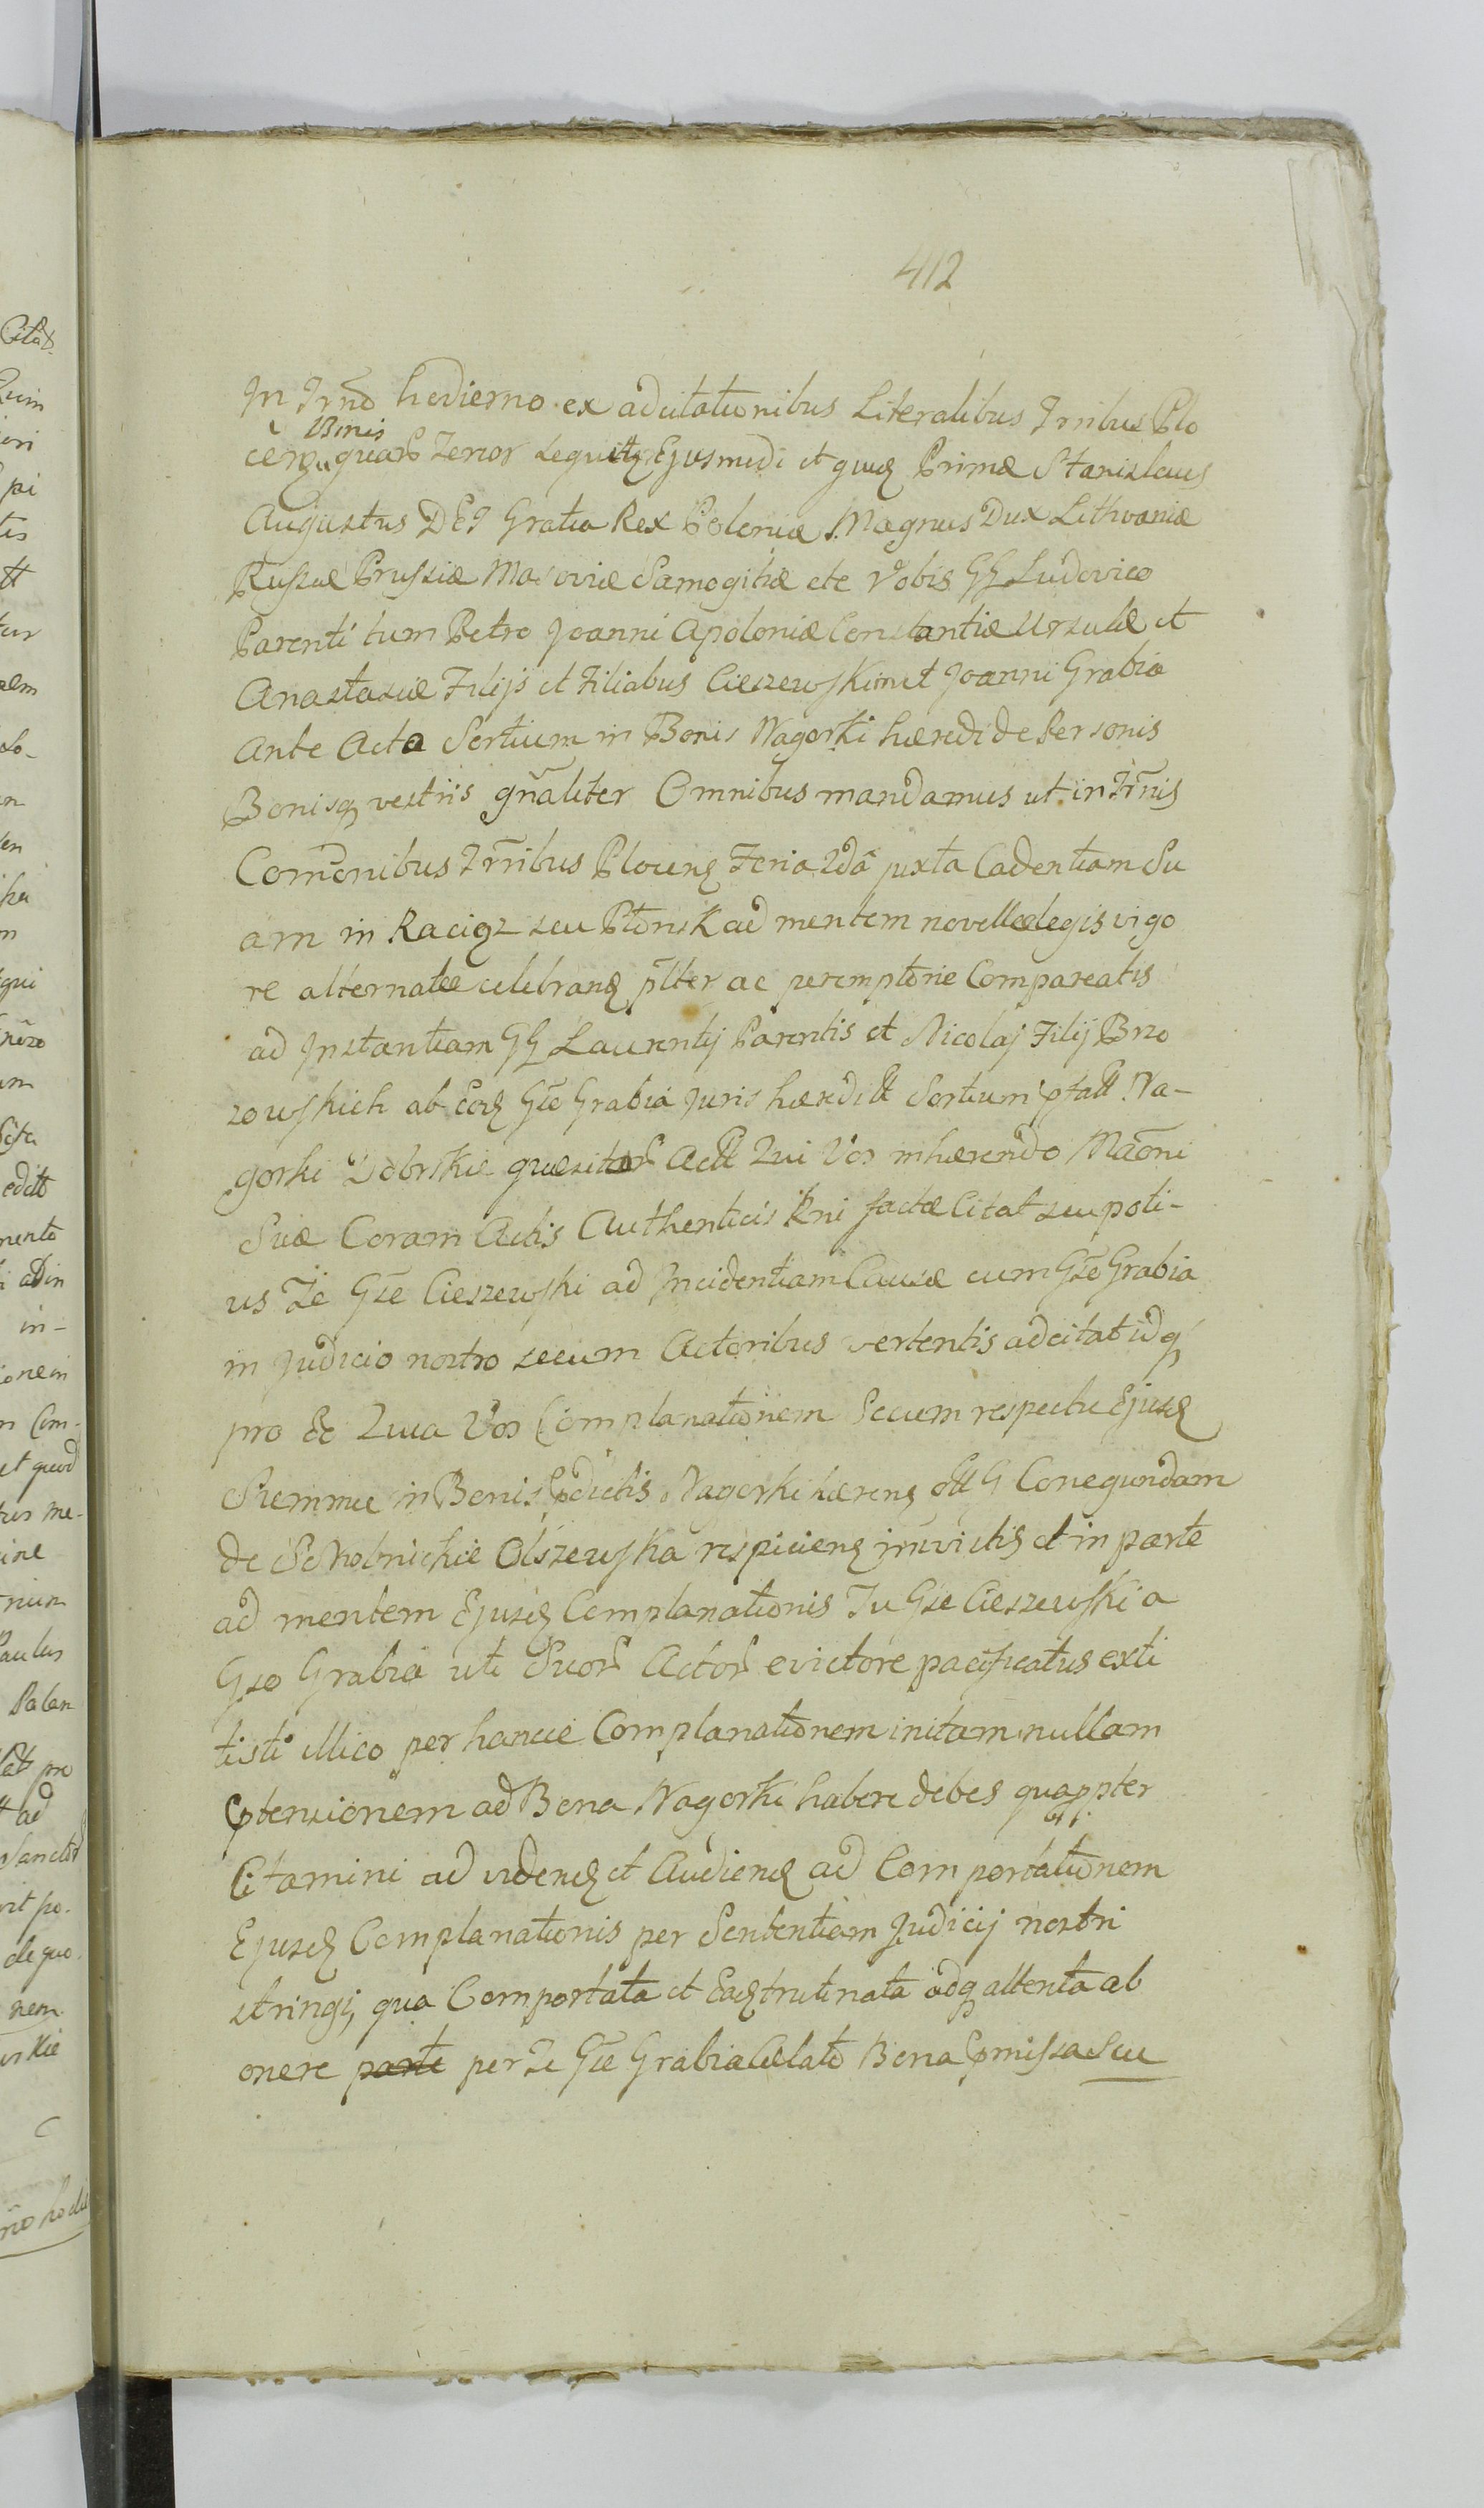 412
In Trno hodierno ex adcitationibus Literalibus Trribus Plo
Binis
cen quar Tenor sequitr Ejusmodi et quid Primæ Stanislaus
Augustus DEI Gratia Rex Poloniæ Magnus Dux Lithvaniæ
Russiæ Prussiæ Masoviæ Samogitiæ etc Vobis GG Ludovico
Parenti tum Petro Joanni Apoloniæ Constantiæ Ursulæ et
Anastasiæ Filijs et Filiabus Cieszewskim et Joanni Grabia
Ante Acta Sortium in Bonis Nagorki hæredi de Personis
Bonisq vestris gnaliter Omnibus mandamus ut in Trnis
Comonibus Trribus Plocens Feria 2dâ juxta Cadentiam Su
am in Raciąz seu Płonsk ad mentem novellæ legis vigo
re alternatæ celebrand pltter ac peremptorie Compareatis
ad Instantiam GG Laurentij Parentis et Nicolaj Filij Brzo
zowskich ab Eod Gso Grabia Juris hæredit Sortium pfatt Na-
gorki Dobrskie quæsitor Actt Qui Vos inhærendo Maoni
Suæ Coram Actis Authenticis Rni factæ Citat seu poti-
us Te Gse Cieszewski ad Incidentiam Causæ cum Gso Grabia
in Judicio nostro secum Actoribus vertentis adcitat idq
pro Eo Quia Vos Complanationem Secum respectu Ejusd
Summæ in Bonis pdictis Nagorki hærens ott G Conegundam
de Olszewska respiciens et in parte
ad mentem Ejusd Complanationis Tu Gse Cieszewski a
Gso Grabia uti Suor Actor evictore pacificatus exti
tisti illico per hancce Complanationem initam nullam
ptensionem ad Bona Nagorki habere debes quappter
Citamini ad videnđ et Audienđ ad Comportationem
Ejusd Complanationis per Sententiam Judicij nostri
stringi, qua Comportata et Eadtrutinata adq attenta ab
onere parte per Te Gse Grabia illato Bona pmissa Seu